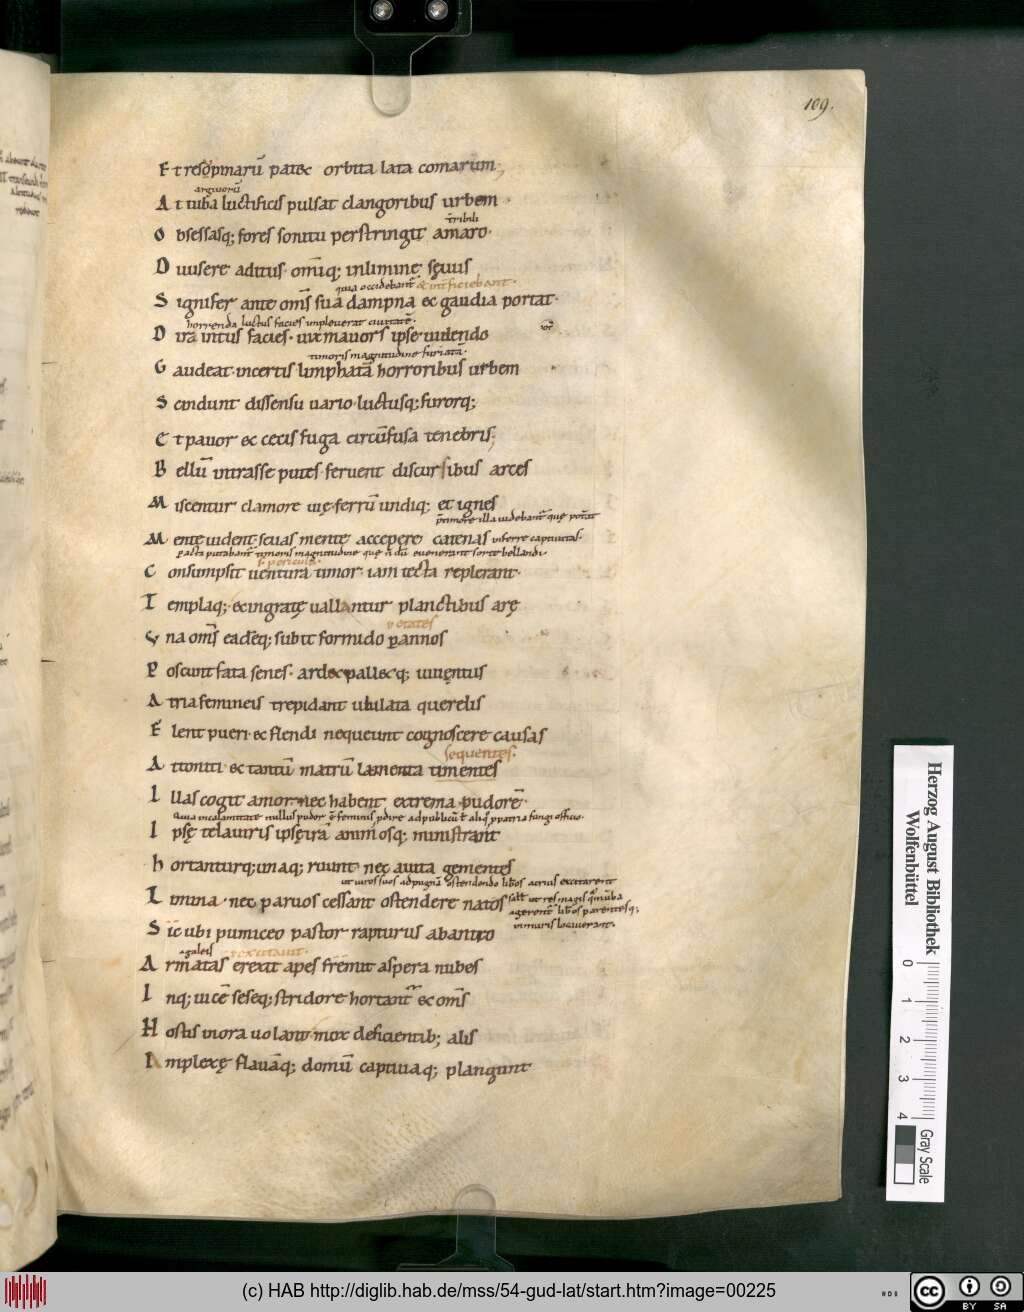 109.
Et resopinarū patet orbita lata comarum,
argiuorū
At tuba luctificis pulsat clangoribus urbem
t̄ribili
Obsessasq; fores sonitu perstringit amaro.
Diuisere aditus. om̄iq; inlimine sęuus
quia occidebant̄ & int̄ficiebant.
Signifer ante om̄s sua dampna & gaudia portat.
horrenda luctus facies impleuerat ciuitatē.
Dira intus facies. uix mauors ipse uidendo
timoris magnitudine furiatā.
Gaudeat. incertis limphatā horroribus urbem
Scindunt dissensu uario. luctusq; furorq;
Et pauor & cecis fuga circūfusa tenebris;
Bellū intrasse putes. feruent discursibus arces
Miscentur clamore uię. ferrū undiq; et ignes
Mente uident. seuas mente accepere catenas inferre captiuitas.
facta putabant̄ timoris magnitudine que n̄ dū euenerant sorte bellandi.
s. pericula.
Consumpsit uentura timor. iam tecta replerant.
Templaq; & ingratę uallantur planctibus arę
ętates
Vna om̄s eadēq; subit formido p̱annos
Poscunt fata senes. ardet palletq; iuuentus
Atria femineis trepidant ululata querelis
Flent pueri. & flendi nequeunt cognoscere causas
sequentes.
Attoniti. & tantū matrū lamenta timentes
Illas cogit amor. nec habent extrema pudorē.
Ipsę tela uiris ipsę irā animosq; ministrant
Hortanturq; unaq; ruunt. nec auita gementes
ut uiros suos ad pugnā ostendendo lib̄os acrius excitarent
Limina. nec paruos cessant ostendere natos
Sic̄ ubi pumiceo pastor rapturus ab antro
agales excitauit.
Armatas erexit apes fremit aspera nubes
Inq; uicē seseq; stridore hortant̄ & om̄s
Hostis inora uolant mox deficientib; alis
Amplexę flauāq; domū captiuaq; plangunt
Herzog August Bibliothek
Wolfenbüttel
0 1 2 3 4
Gray Scale
(c) HAB http://diglib.hab.de/mss/54-gud-lat/start.htm?image=00225
cc BY SA